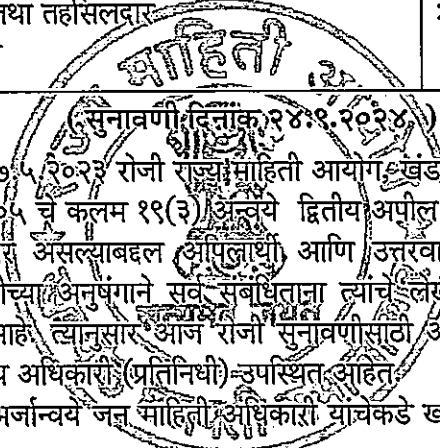 तथा तहसिलदार
माहिती
( सुनावणी दिनांक २४.९.२०२४ )
७.५.२०२३ रोजी राज्य माहिती आयोग, खंड
०५ चे कलम १९(३) अन्वये द्वितीय अपील
असल्याबद्दल अपिलार्थी आणि उत्तरवा
च्या अनुषंगाने सर्व संबंधितांना त्यांचे ले
आहे. त्यानुसार आज रोजी सुनावणीसाठी अ
य अधिकारी (प्रतिनिधी) उपस्थित आहेत.
अर्जान्वये जन माहिती अधिकारी यांचेकडे ख